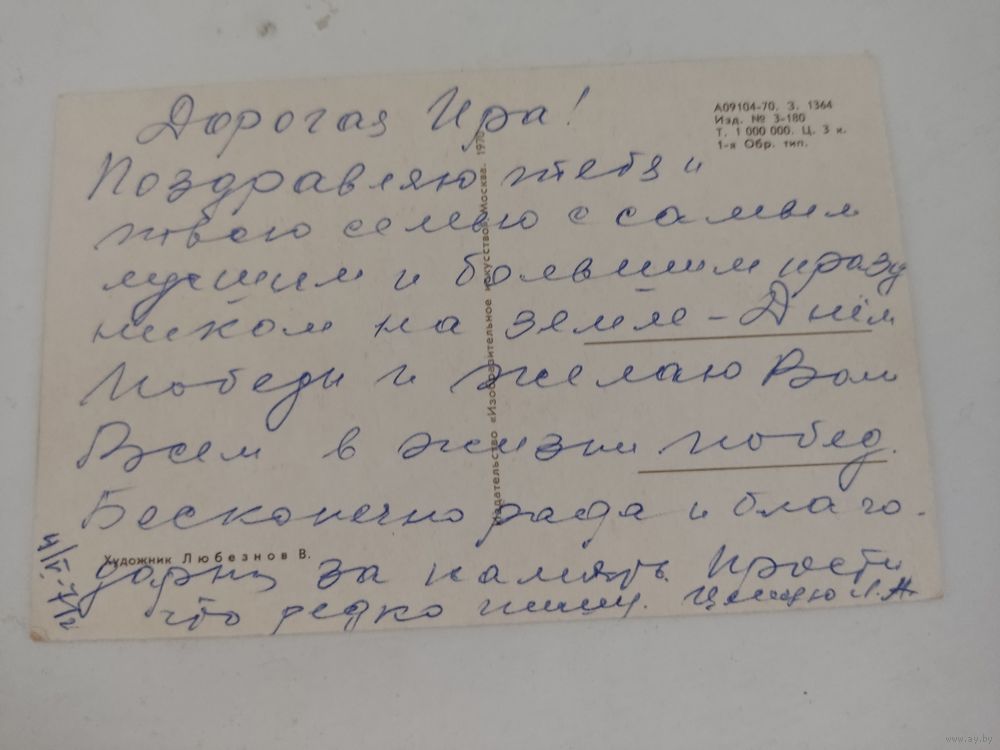 Дорогая Ира!
Поздравляю тебя и
твою семью с самым
лучшим и большим празд
ником на земле – Днём
Победы и желаю Вам
Всем в жизни побед.
Бесконечно рада и благо-
дарна за память. Прости
что редко пишу. Целую Л.А.
А09104-70. З. 1364
Изд. № 3-180
Т. 1 000 000. Ц. 3 к.
1-я Обр. тип.
Издательство «Изобразительное искусство» Москва. 1970
Художник Любезнов В.
www.ay.by